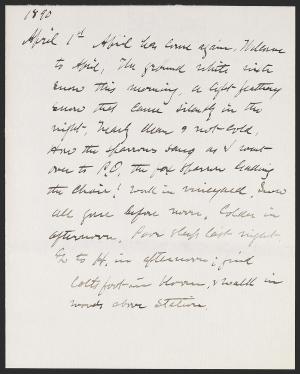 1890
April 1st April has come again. Welcome
to April. The ground white with
snow this morning, a light feathery
snow that came silently in the
night. Nearly clear & not cold.
How the sparrows sang as I went
over to P.O. the fox sparrow leading
the choir! Work in vineyard. Snow
all gone before noon. Colder in
afternoon. Poor sleep last night.
Go to H. in afternoon; find
Coltsfoot in bloom, & walk in
woods above station.